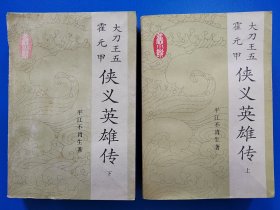 大刀王五
霍元甲
侠义英雄传
下
平江不肖生著
大刀王五
霍元甲
侠义英雄传
上
平江不肖生著